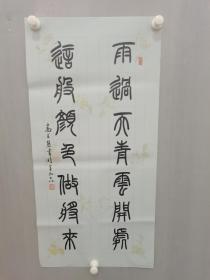 雨過天青雲開處
這般顏色做將來